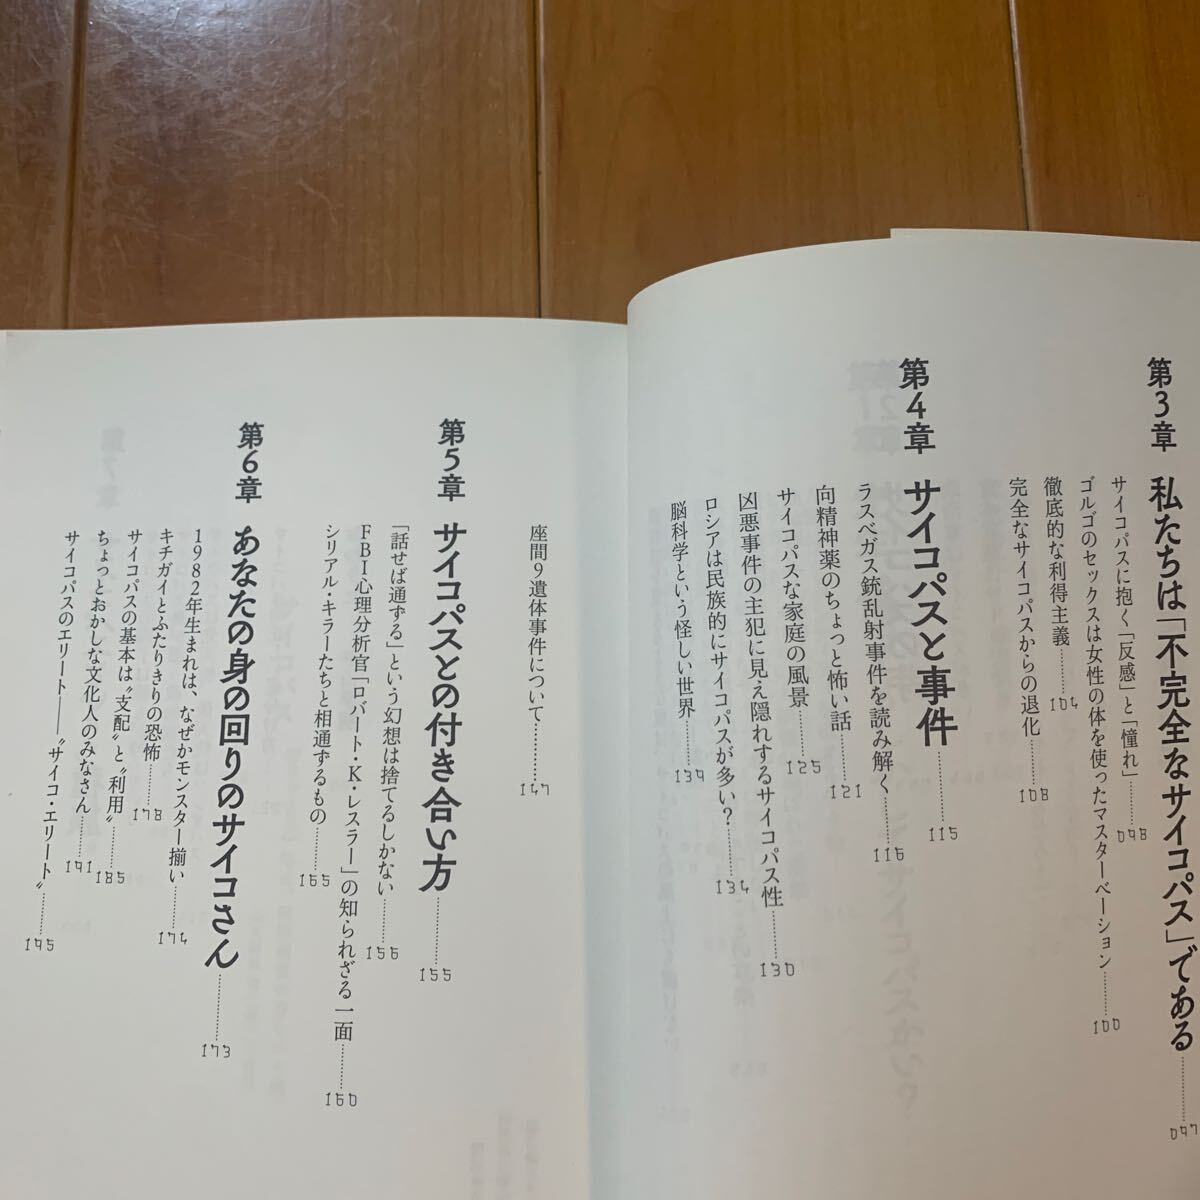 第3章 私たちは「不完全なサイコパス」である………097
サイコパスに抱く「反感」と「憧れ」………098
ゴルゴのセックスは女性の体を使ったマスターベーション………100
徹底的な利得主義………104
完全なサイコパスからの退化………108
第4章 サイコパスと事件………115
ラスベガス銃乱射事件を読み解く………116
向精神薬のちょっと怖い話………121
サイコパスな家庭の風景………125
凶悪事件の主犯に見え隠れするサイコパス性………130
ロシアは民族的にサイコパスが多い？………134
脳科学という怪しい世界………139
座間9遺体事件について………147
第5章 サイコパスとの付き合い方………155
「話せば通ずる」という幻想は捨てるしかない………156
FBI心理分析官「ロバート・K・レスラー」の知られざる一面………160
シリアル・キラーたちと相通ずるもの………165
第6章 あなたの身の回りのサイコさん………173
1982年生まれは、なぜかモンスター揃い………174
キチガイとふたりきりの恐怖………178
サイコパスの基本は〝支配〟と〝利用〟………185
ちょっとおかしな文化人のみなさん………191
サイコパスのエリート――〝サイコ・エリート〟………195